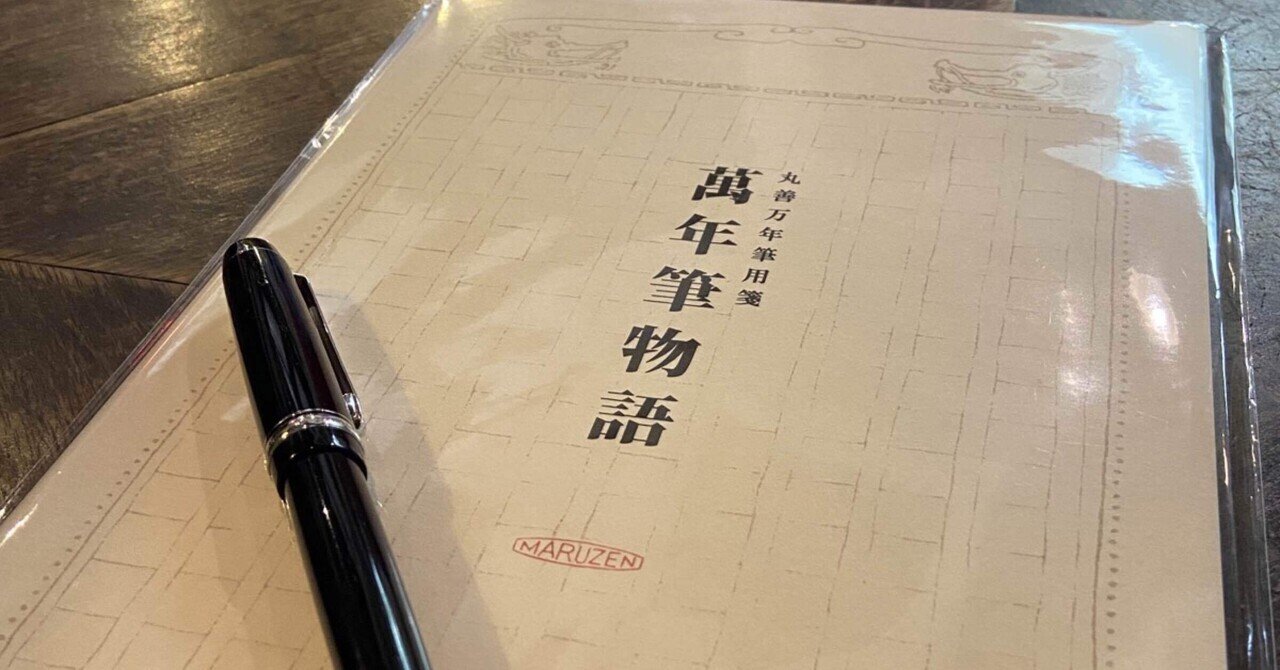 丸善万年筆用箋
萬年筆物語
MARUZEN